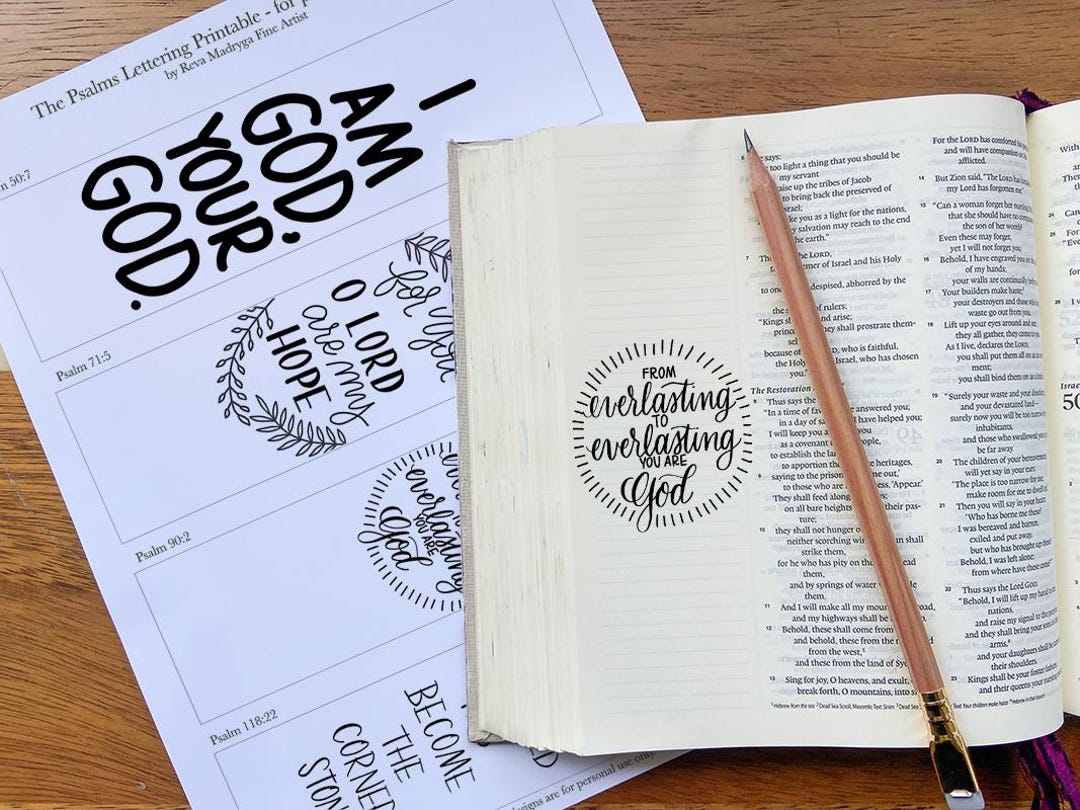 The Psalms Lettering Printable - for
by Reva Madryga Fine Artist
50:7
I
AM
GOD.
YOUR
GOD.
Psalm 71:5
for you
O LORD
are my
HOPE
Psalm 90:2
everlasting
YOU ARE
God
Psalm 118:22
BECOME
THE
CORNER
STON
designs are for personal use only
FROM
everlasting
TO
everlasting
YOU ARE
God
6 says:
too light a thing that you should be
my servant
raise up the tribes of Jacob
to bring back the preserved of
you as a light for the nations,
salvation may reach to the end
the earth."
7 the LORD,
of Israel and his Holy
despised, abhorred by the
of rulers:
"Kings and arise;
they shall prostrate them-
because of who is faithful,
the Holy Israel, who has chosen
you."
The Restoration
8 Thus says the
"In a time of answered you;
in a day of I have helped you;
I will keep you you
as a covenant
to establish the
to apportion the heritages,
9 saying to the out,'
to those who are 'Appear.'
They shall feed along
on all bare heights pas-
ture;
10 they shall not hunger
neither scorching shall
strike them,
for he who has pity on
them,
and by springs of water
them.
11 And I will make all my road,
and my highways shall be
12 Behold, these shall come from
and behold, these from the
from the west,
and these from the land of
13 Sing for joy, O heavens, and exult,
break forth, O mountains, into
For the LORD has comforted his
and will have compassion on his
afflicted.
14 But Zion said, "The LORD has
my Lord has forgotten me."
15 "Can a woman forget her nursing
that she should have no
the son of her womb?
Even these may forget,
yet I will not forget you.
16 Behold, I have engraved you on
of my hands;
your walls are continually before
17 Your builders make haste;
your destroyers and those who
waste go out from you.
18 Lift up your eyes around and see;
they all gather, they come to
As I live, declares the LORD,
you shall put them all on as
ment;
you shall bind them on as a
19 "Surely your waste and your
and your devastated land—
surely now you will be too narrow
inhabitants,
and those who swallowed you
be far away.
20 The children of your bereavement
will yet say in your ears:
'The place is too narrow for me;
make room for me to dwell
21 Then you will say in your heart:
'Who has borne me these?
I was bereaved and barren,
exiled and put away,
but who has brought up these?
Behold, I was left alone;
from where have these come?'"
22 Thus says the Lord GOD:
"Behold, I will lift up my hand to
nations,
and raise my signal to the
and they shall bring your sons
arms,
and your daughters shall be
their shoulders.
23 Kings shall be your foster fathers,
and their queens your nursing